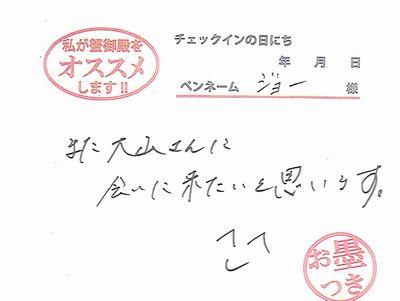 私が蟹御殿を
オススメ
します!!
チェックインの日にち
年 月 日
ペンネーム ジョー 様
また大山さんに
会いに来たいと思います。
お墨
つき